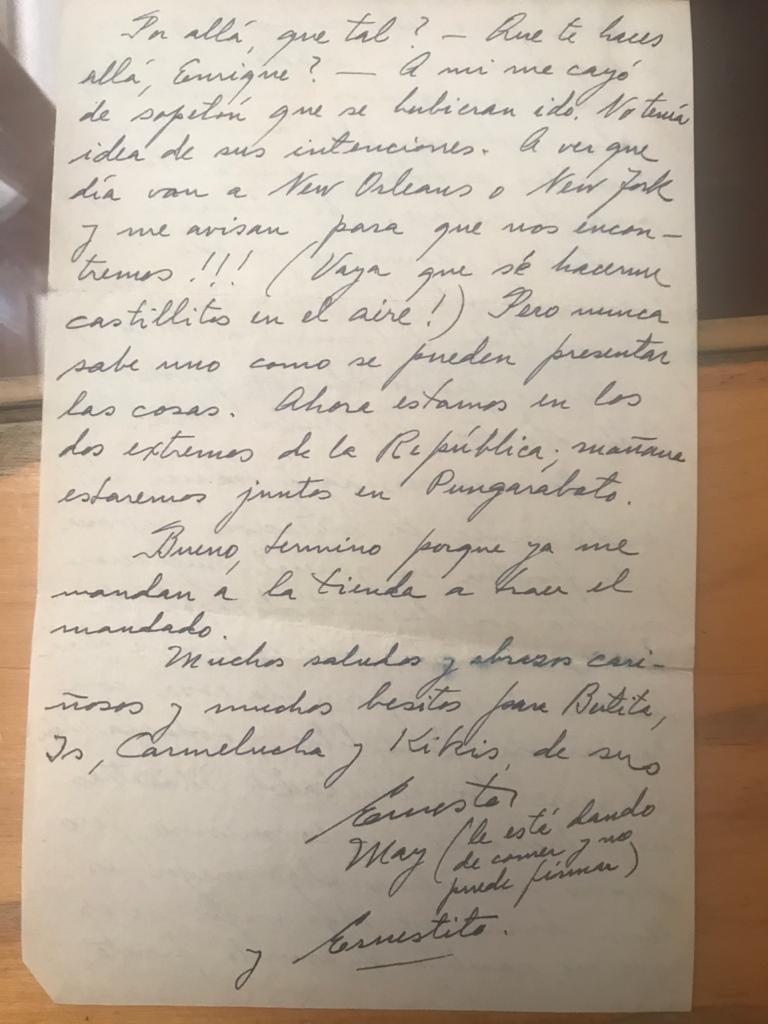 Por allá, que tal? — Que te haces
allá, Enrique? — A mi me cayó
de sopetón que se hubieran ido. No tenía
idea de sus intenciones. A ver que
día van a New Orleans o New York
y me avisan para que nos encon-
tremos!!! (Vaya que sé hacerme
castillitos en el aire!) Pero nunca
sabe uno como se pueden presentar
las cosas. Ahora estamos en los
dos extremos de la República; mañana
estaremos juntos en Pungarabato.
Bueno, termino porque ya me
mandan a la tienda a traer el
mandado.
Muchos saludos y abrazos cari-
ñosos y muchos besitos para Betita,
Is, Carmelucha y Kikis, de sus
Ernesto
May (le está dando
de comer y no
puede firmar)
y Ernestito.